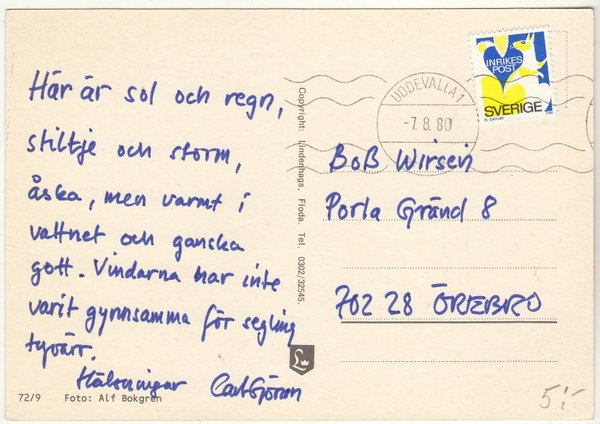 Här är sol och regn,
stiltje och storm,
åska, men varmt i
vattnet och ganska
gott. Vindarna har inte
varit gynnsamma för segling
tyvärr.
Hälsningar Carl-Göran
72/9 Foto: Alf Bokgren
Copyright: Lindenhags, Floda. Tel. 0302/32545.
L
UDDEVALLA 1
-7. 8. 80
INRIKES
POST
SVERIGE
Boß Wirsén
Porla Gränd 8
702 28 ÖREBRO
5:-